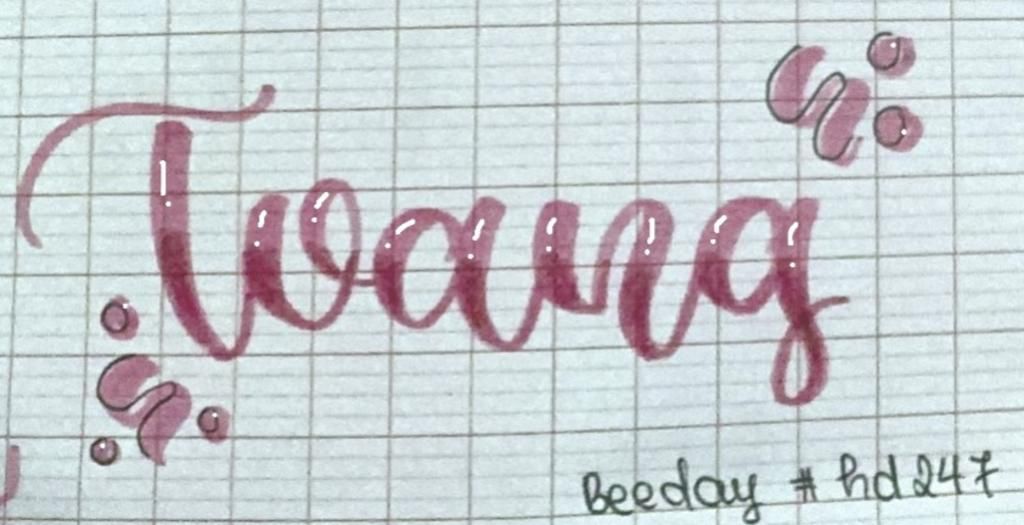 Toang
Beeday # hd247